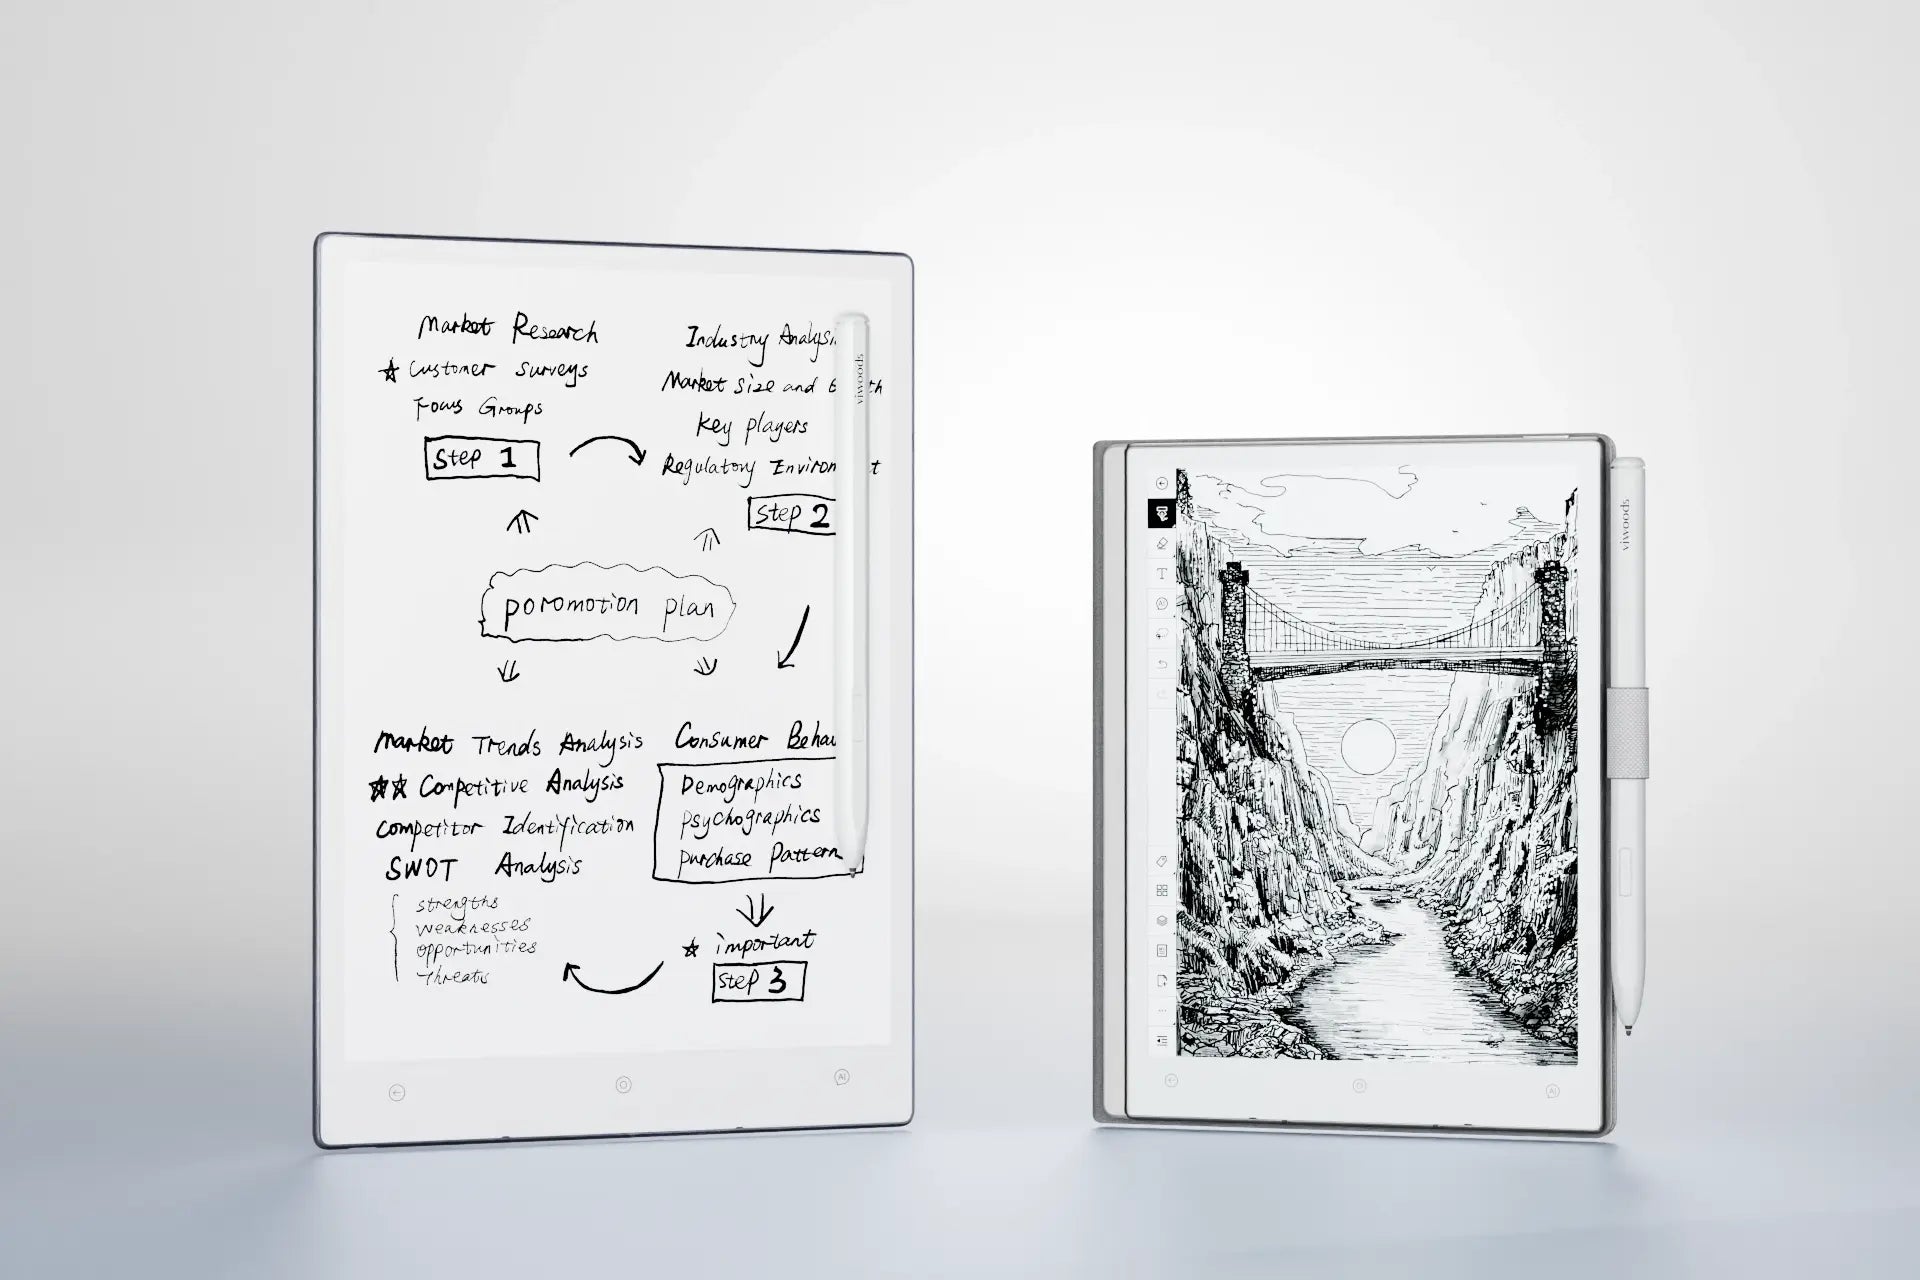 Market Research
☆ Customer Surveys
Focus Groups
Step 1
Industry Analysi
Market Size and G th
key players
Regulatory Environ t
Step 2
poromotion plan
Market Trends Analysis
☆☆ Competitive Analysis
Competitor Identification
SWOT Analysis
strengths
weaknesses
opportunities
Threats
Consumer Behav
Demographics
psychographics
purchase Pattern
☆ important
Step 3
viwoods
AI
T
viwoods
AI